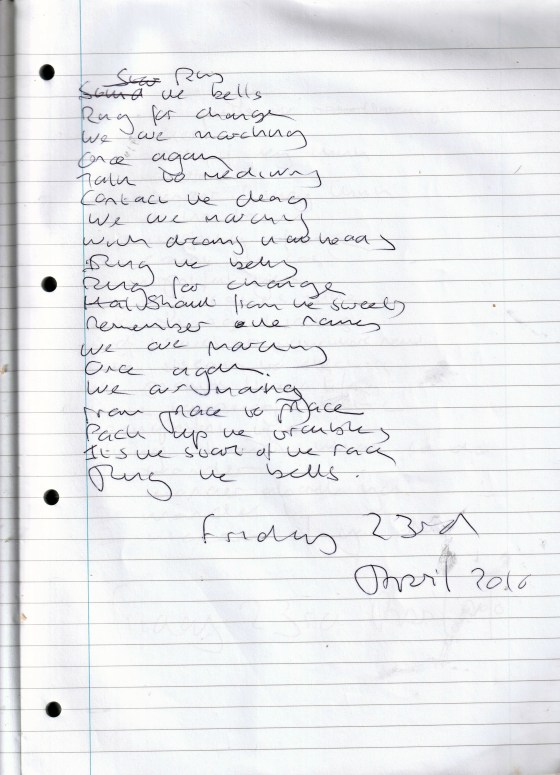 Ring
Sound the bells
Ring for change
We are marching
Once again
Talk to
Contact the
We are marching
With in heads
Ring the bells
Ring for change
Shout from the streets
Remember the names
We are marching
Once again.
We are moving
From place to place
Pack up the troubles
It's the start of the race
Ring the bells.
Friday 23rd
April 2016